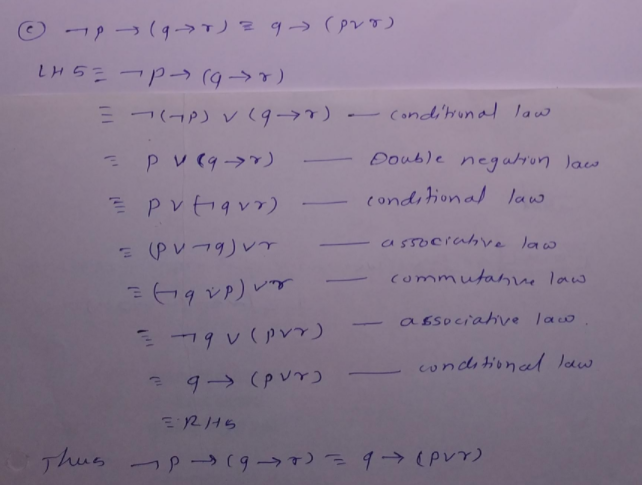 (c) ¬p → (q→r) ≡ q → (p∨r)
LHS ≡ ¬p → (q→r)
≡ ¬(¬p) ∨ (q→r) — conditional law
≡ p ∨ (q→r) — Double negation law
≡ p ∨ (¬q∨r) — conditional law
≡ (p∨¬q)∨r — associative law
≡ (¬q∨p)∨r — commutative law
≡ ¬q ∨ (p∨r) — associative law.
≡ q → (p∨r) — conditional law
≡ RHS
Thus ¬p → (q→r) ≡ q → (p∨r)